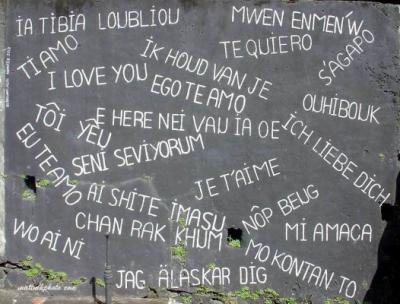 iA TiBiA LOUBLiOU
MWEN ENMEN'W
Ti AMO
iK HOUD VAN JE
TE QUiERO
S'AGAPO
I LOVE YOU
EGO TE AMO
OUHiBOUK
TÔi YÊU
E HERE NEi VAU iA OE
iCH LiEBE DiCH
EU TE AMO
SENi SEViYORUM
JE T'AiME
Ai SHiTE iMASU
NÔP BEUG
CHAN RAK KHUM
Mi AMACA
WO Ai Ni
MO KONTAN TO
JAG ÄLASKAR DIG